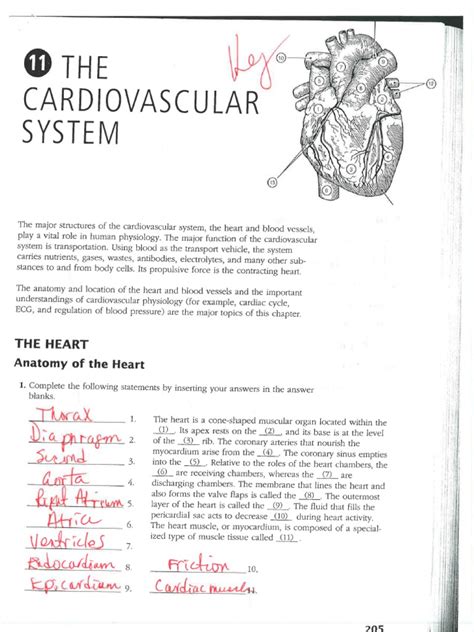 11 THE
CARDIOVASCULAR
SYSTEM
Key
10
12
13
The major structures of the cardiovascular system, the heart and blood vessels,
play a vital role in human physiology. The major function of the cardiovascular
system is transportation. Using blood as the transport vehicle, the system
carries nutrients, gases, wastes, antibodies, electrolytes, and many other sub-
stances to and from body cells. Its propulsive force is the contracting heart.
The anatomy and location of the heart and blood vessels and the important
understandings of cardiovascular physiology (for example, cardiac cycle,
ECG, and regulation of blood pressure) are the major topics of this chapter.
THE HEART
Anatomy of the Heart
1. Complete the following statements by inserting your answers in the answer
blanks.
Thorax 1.
Diaphragm 2.
Second 3.
Aorta 4.
Right Atrium 5.
Atria 6.
Ventricles 7.
Endocardium 8.
Epicardium 9.
The heart is a cone-shaped muscular organ located within the
(1). Its apex rests on the (2), and its base is at the level
of the (3) rib. The coronary arteries that nourish the
myocardium arise from the (4). The coronary sinus empties
into the (5). Relative to the roles of the heart chambers, the
(6) are receiving chambers, whereas the (7) are
discharging chambers. The membrane that lines the heart and
also forms the valve flaps is called the (8). The outermost
layer of the heart is called the (9). The fluid that fills the
pericardial sac acts to decrease (10) during heart activity.
The heart muscle, or myocardium, is composed of a special-
ized type of muscle tissue called (11).
Friction 10.
Cardiac muscle 11.
205